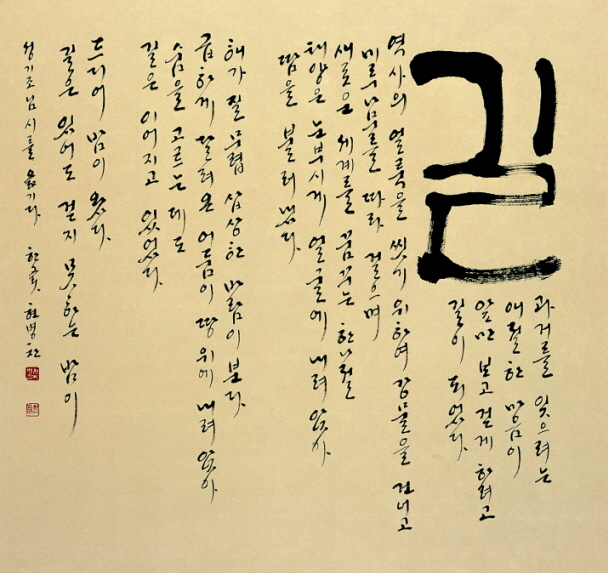 길
과거를 잊으려는
애절한 마음이
앞만 보고 걷게 하려고
길이 되었다.
역사의 얼룩을 씻기 위하여 강물을 건너고
미루나무를 따라 걸으며
새로운 세계를 꿈꾸는 한나절
태양은 눈부시게 얼굴에 내려 앉아
땀을 불러 냈다.
해가 질 무렵 삽상한 바람이 분다.
급하게 달려온 어둠이 땅 위에 내려 앉아
숨을 고르는데도
길은 이어지고 있었다.
드디어 밤이 왔다.
길은 있어도 걷지 못하는 밤이
성기조님 시를 옮기다. 한곬 현병찬